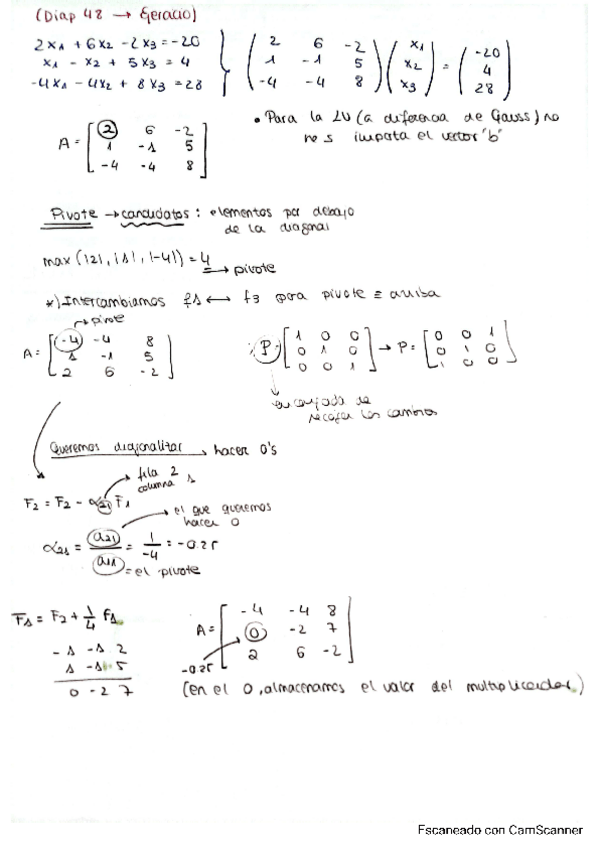 (Diap 48 → Ejercicio)
2x1 + 6x2 - 2x3 = -20
x1 - x2 + 5x3 = 4
-4x1 - 4x2 + 8x3 = 28
( 2 6 -2 ) ( x1 ) ( -20 )
( 1 -1 5 ) ( x2 ) = ( 4 )
( -4 -4 8 ) ( x3 ) ( 28 )
• Para la LU (a diferencia de Gauss) no
nos importa el vector "b"
A = [ 2 6 -2
1 -1 5
-4 -4 8 ]
Pivote → candidatos : elementos por debajo
de la diagonal
max (|2|, |1|, |-4|) = 4
→ pivote
*) Intercambiamos f1 ↔ f3 para pivote = arriba
→ pivote
A = [ -4 -4 8
1 -1 5
2 6 -2 ]
P = [ 1 0 0
0 1 0
0 0 1 ] → P = [ 0 0 1
0 1 0
1 0 0 ]
encargada de
recoger los cambios
Queremos diagonalizar → hacer 0's
fila 2
columna 1
F2 = F2 - α21 F1
el que queremos
hacer 0
α21 = a21 / a11 = 1 / -4 = -0.25
= el pivote
F1 = F2 + 1/4 F1
-1 -1 2
1 -1 5
0 -2 7
A = [ -4 -4 8
0 -2 7
2 6 -2 ]
-0.25
(en el 0, almacenamos el valor del multiplicador)
Escaneado con CamScanner